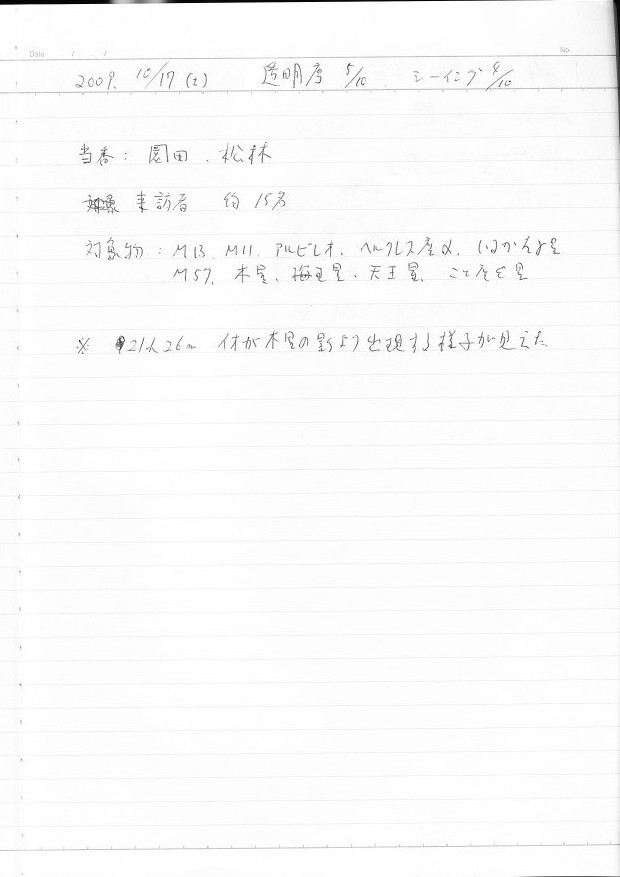 Date / / No.
2009. 10/17 (土) 透明度 5/10. シーイング 4/10
当番: 園田、松林
来訪者 約15名
対象物: M13、M11、アルビレオ、ヘルクレス座α、いるか座γ星
M57、木星、海王星、天王星、こと座ε星
※ 21h26m イオが木星の影より出現する様子が見えた